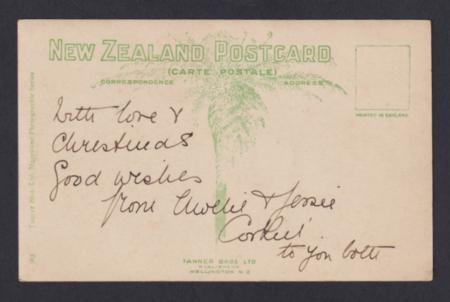 NEW ZEALAND POSTCARD
(CARTE POSTALE)
CORRESPONDENCE ADDRESS
PRINTED IN ENGLAND
With love &
Christmas
Good wishes
from & Jessie
to you both
TANNER BROS LTD
WELLINGTON N.Z
Tanner Bros. Ltd. Maoriland Photographic Series